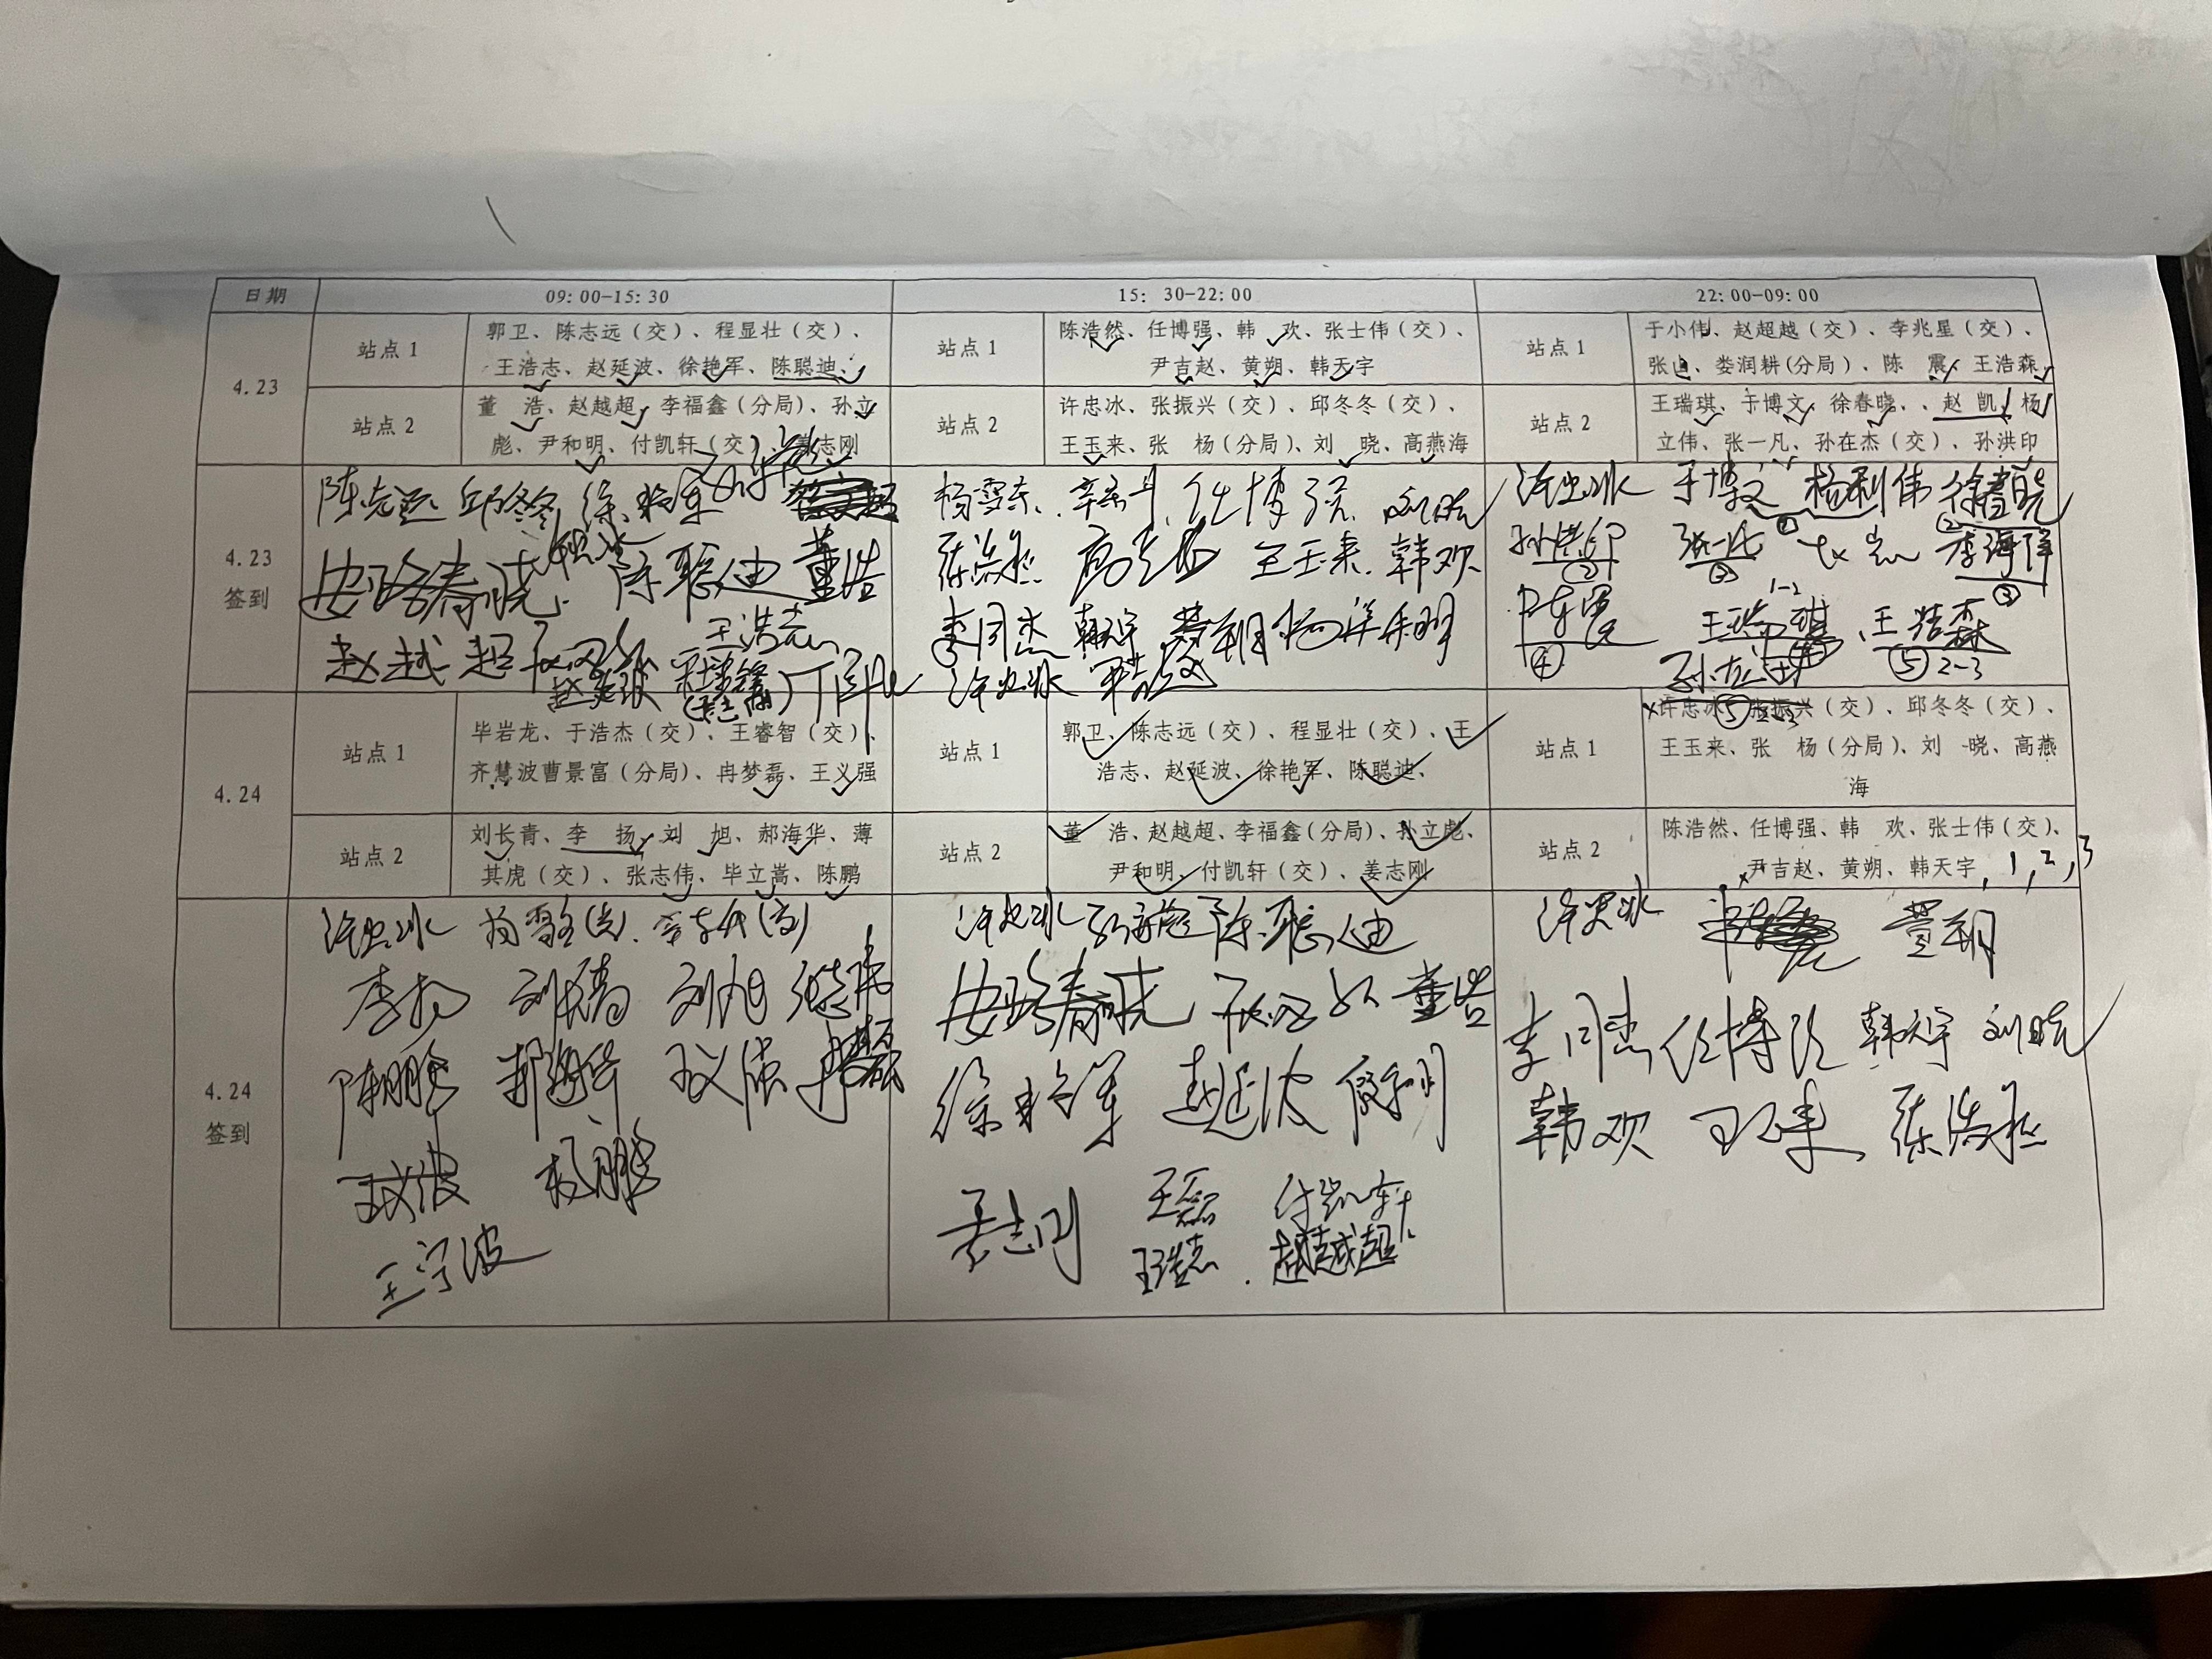 日期 09:00-15:30 15:30-22:00 22:00-09:00
4.23
站点1
郭卫、陈志远（交）、程显壮（交）、
王浩志、赵延波、徐艳军、陈聪迪、
站点1
陈浩然、任博强、韩 欢、张士伟（交）、
尹吉赵、黄朔、韩天宇
站点1
于小伟、赵超越（交）、李兆星（交）、
张迪、娄润耕(分局）、陈 震、王浩森、
站点2
董 浩、赵越超、李福鑫（分局)、孙立
彪、尹和明、付凯轩（交）、姜志刚
站点2
许忠冰、张振兴（交）、邱冬冬（交）、
王玉来、张 杨(分局)、刘 晓、高燕海
站点2
王瑞琪、于博文、徐春晓、、赵 凯、杨
立伟、张一凡、孙在杰（交）、孙洪印
4.23
签到
陈志远 邱冬冬 徐艳军
陈聪迪 董浩
赵越超 王浩志
赵延波 (姜志刚)
杨雪东 任博强 刘晓
陈浩然 高燕海 王玉来 韩欢
李同杰 韩天宇 黄朔
许忠冰
许忠冰 于博文 杨利伟 徐春晓
① ②
孙洪印 张一凡 李海洋
② ③ ③
陈震 1-2 王瑞琪 王浩森
④ ④ ⑤ 2-3
孙在杰
⑤
4.24
站点1
毕岩龙、于浩杰（交）、王睿智（交）、
齐慧波曹景富（分局)、冉梦磊、王义强
站点1
郭卫、陈志远（交）、程显壮（交）、王
浩志、赵延波、徐艳军、陈聪迪、
站点1
许忠冰、张振兴（交）、邱冬冬（交）、
王玉来、张 杨（分局)、刘 晓、高燕
海
站点2
刘长青、李 扬、刘 旭、郝海华、薄
其虎（交）、张志伟、毕立嵩、陈鹏
站点2
董 浩、赵越超、李福鑫(分局)、孙立彪、
尹和明、付凯轩（交）、姜志刚
站点2
陈浩然、任博强、韩 欢、张士伟（交）、
尹吉赵、黄朔、韩天宇，1，2，3
4.24
签到
许忠冰
李扬 刘长青 刘旭 张志伟
陈鹏 郝海华 王义强 冉梦磊
杨鹏
王宁波
许忠冰 孙立彪 陈聪迪
董浩
徐艳军 赵延波 尹和明
姜志刚 王磊 付凯轩
王浩志 赵越超
许忠冰 黄朔
李同杰 任博强 韩天宇 刘晓
韩欢 王玉来 陈浩然